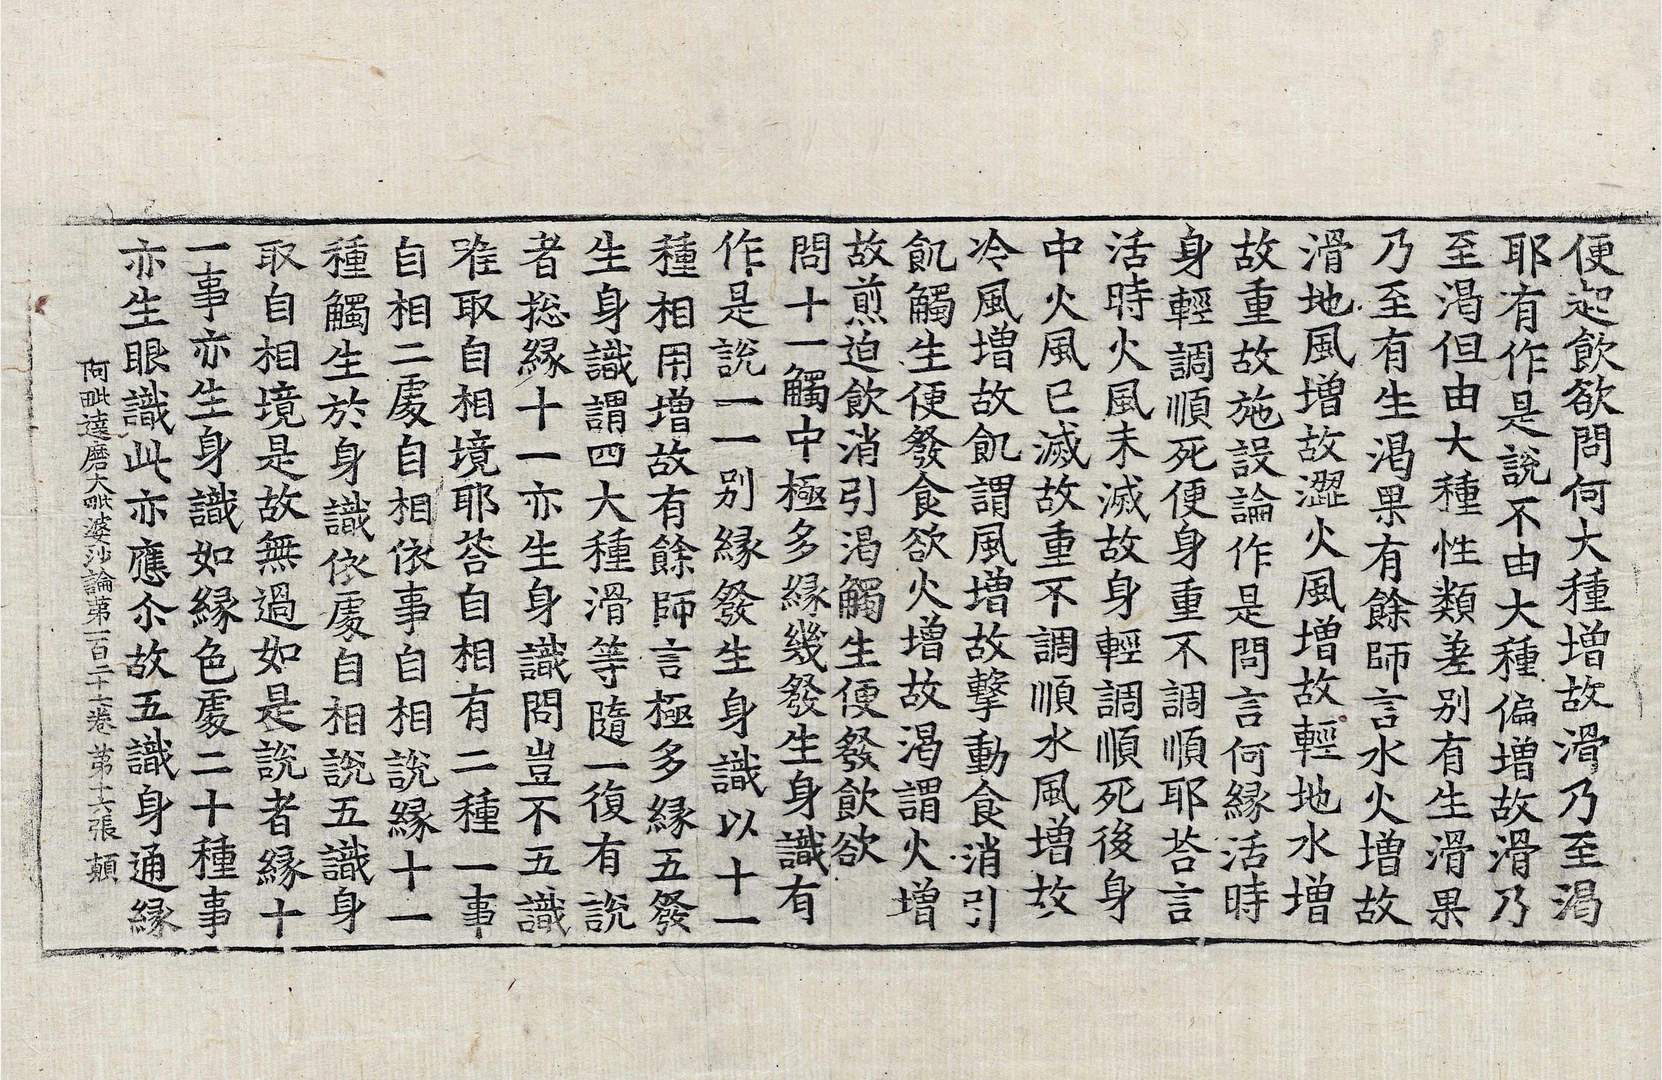 便起飲欲問何大種增故滑乃至渴
耶有作是說不由大種偏增故滑乃
至渴但由大種性類差別有生滑果
乃至有生渴果有餘師言水火增故
滑地風增故澀火風增故輕地水增
故重故施設論作是問言何緣活時
身輕調順死便身重不調順耶荅言
活時火風未滅故身輕調順死後身
中火風已滅故重不調順水風增故
冷風增故飢謂風增故擊動食消引
飢觸生便發食欲火增故渴謂火增
故煎迫飲消引渴觸生便發飲欲
問十一觸中極多緣幾發生身識有
作是說一一別緣發生身識以十一
種相用增故有餘師言極多緣五發
生身識謂四大種滑等隨一復有說
者捴緣十一亦生身識問豈不五識
唯取自相境耶荅自相有二種一事
自相二處自相依事自相說緣十一
種觸生於身識依處自相說五識身
取自相境是故無過如是說者緣十
一事亦生身識如緣色處二十種事
亦生眼識此亦應尒故五識身通緣
阿毗達磨大毗婆沙論第一百二十七卷 第十六張 顛